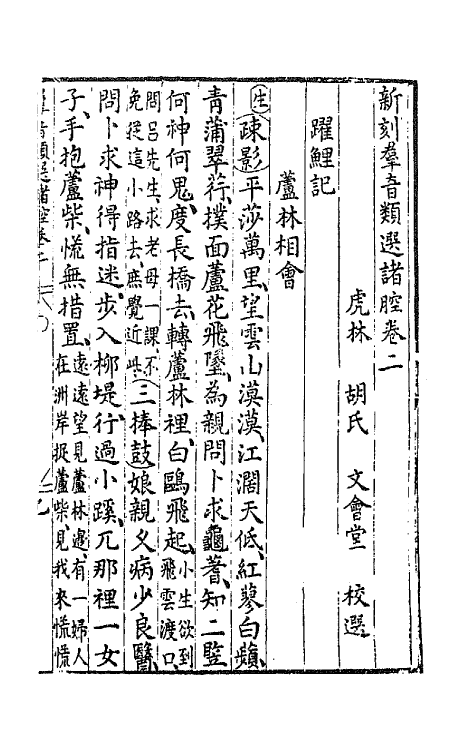 新刻羣音類選諸腔卷二
虎林 胡氏 文會堂 校選
躍鯉記
蘆林相會
生
疎影平莎萬里、望雲山漠漠、江濶天低、紅蓼白蘋、
青蒲翠荇、撲面蘆花飛墜、為親問卜求龜蓍、知二豎
何神何鬼、度長橋去、轉蘆林裡、白鷗飛起、小生欲到飛雲渡口、
問呂先生、求老母一課、不免從這小路去庶覺近些、三捧鼓娘親乂病少良醫、
問卜求神得指迷、步入柳堤、行過小蹊、兀那裡一女
子、手抱蘆柴、慌無措置、遠遠望見蘆林邊、有一婦人在洲岸捉蘆柴、見我來慌慌